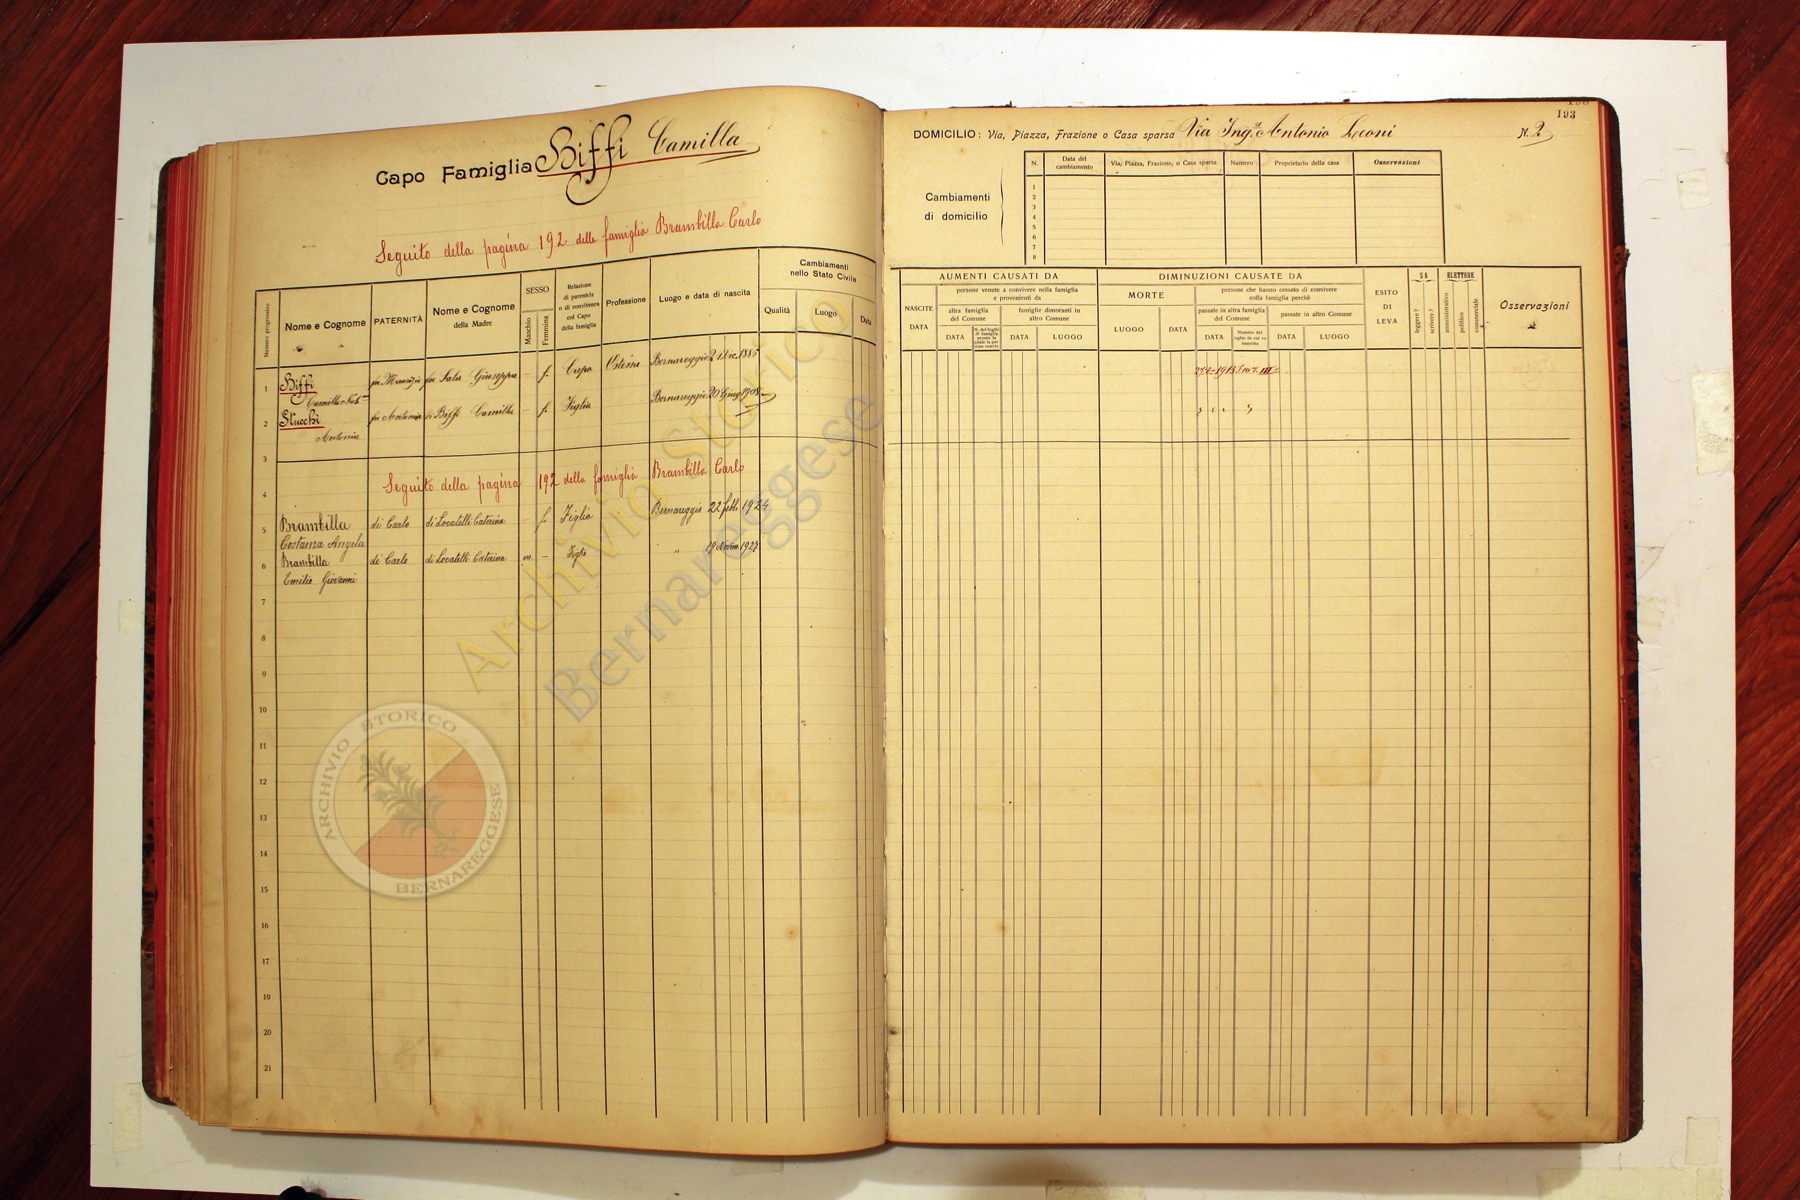 Capo Famiglia Biffi Camilla
Seguito della pagina 192 della famiglia Brambilla Carlo
Numero progressivo
Nome e Cognome
PATERNITÀ
Nome e Cognome
della Madre
SESSO
Maschio
Femmina
Relazione
di parentela
o di convivenza
col Capo
della famiglia
Professione
Luogo e data di nascita
Cambiamenti
nello Stato Civile
Qualità
Luogo
Data
1 Biffi fu Maurizio fu Sala Giuseppa - f. Capo Ostessa Bernareggio 1885
Camilla
2 Stucchi fu Antonio di Biffi Camilla - f. Figlia Bernareggio 20 1908
Antonia
3
4 Seguito della pagina 192 della famiglia Brambilla Carlo
5 Brambilla di Carlo di Locatelli Caterina - f. Figlia Bernareggio 22 febb. 1924
Costanza Angela
6 Brambilla di Carlo di Locatelli Caterina m. - Figlio " 19 Novem. 1927
Emilio Giovanni
7
8
9
10
11
12
13
14
15
16
17
19
20
21
193
DOMICILIO: Via, Piazza, Frazione o Casa sparsa Via Ing.r Antonio Leoni N. 2
Cambiamenti
di domicilio
N.
Data del
cambiamento
Via, Piazza, Frazione, o Casa sparsa
Numero
Proprietario della casa
Osservazioni
1
2
3
4
5
6
7
8
AUMENTI CAUSATI DA
NASCITE
DATA
persone venute a convivere nella famiglia
e provenienti da
altra famiglia
del Comune
DATA
famiglie dimoranti in
altro Comune
DATA
LUOGO
DIMINUZIONI CAUSATE DA
MORTE
LUOGO
DATA
persone che hanno cessato di convivere
colla famiglia perchè
passate in altra famiglia
del Comune
DATA
Numero del
foglio in cui va
inscritto
passate in altro Comune
DATA
LUOGO
ESITO
DI
LEVA
SA
leggere?
scrivere?
ELETTORE
amministrativo
politico
commerciale
Osservazioni
Archivio Storico
Bernareggese
ARCHIVIO STORICO
BERNAREGGESE